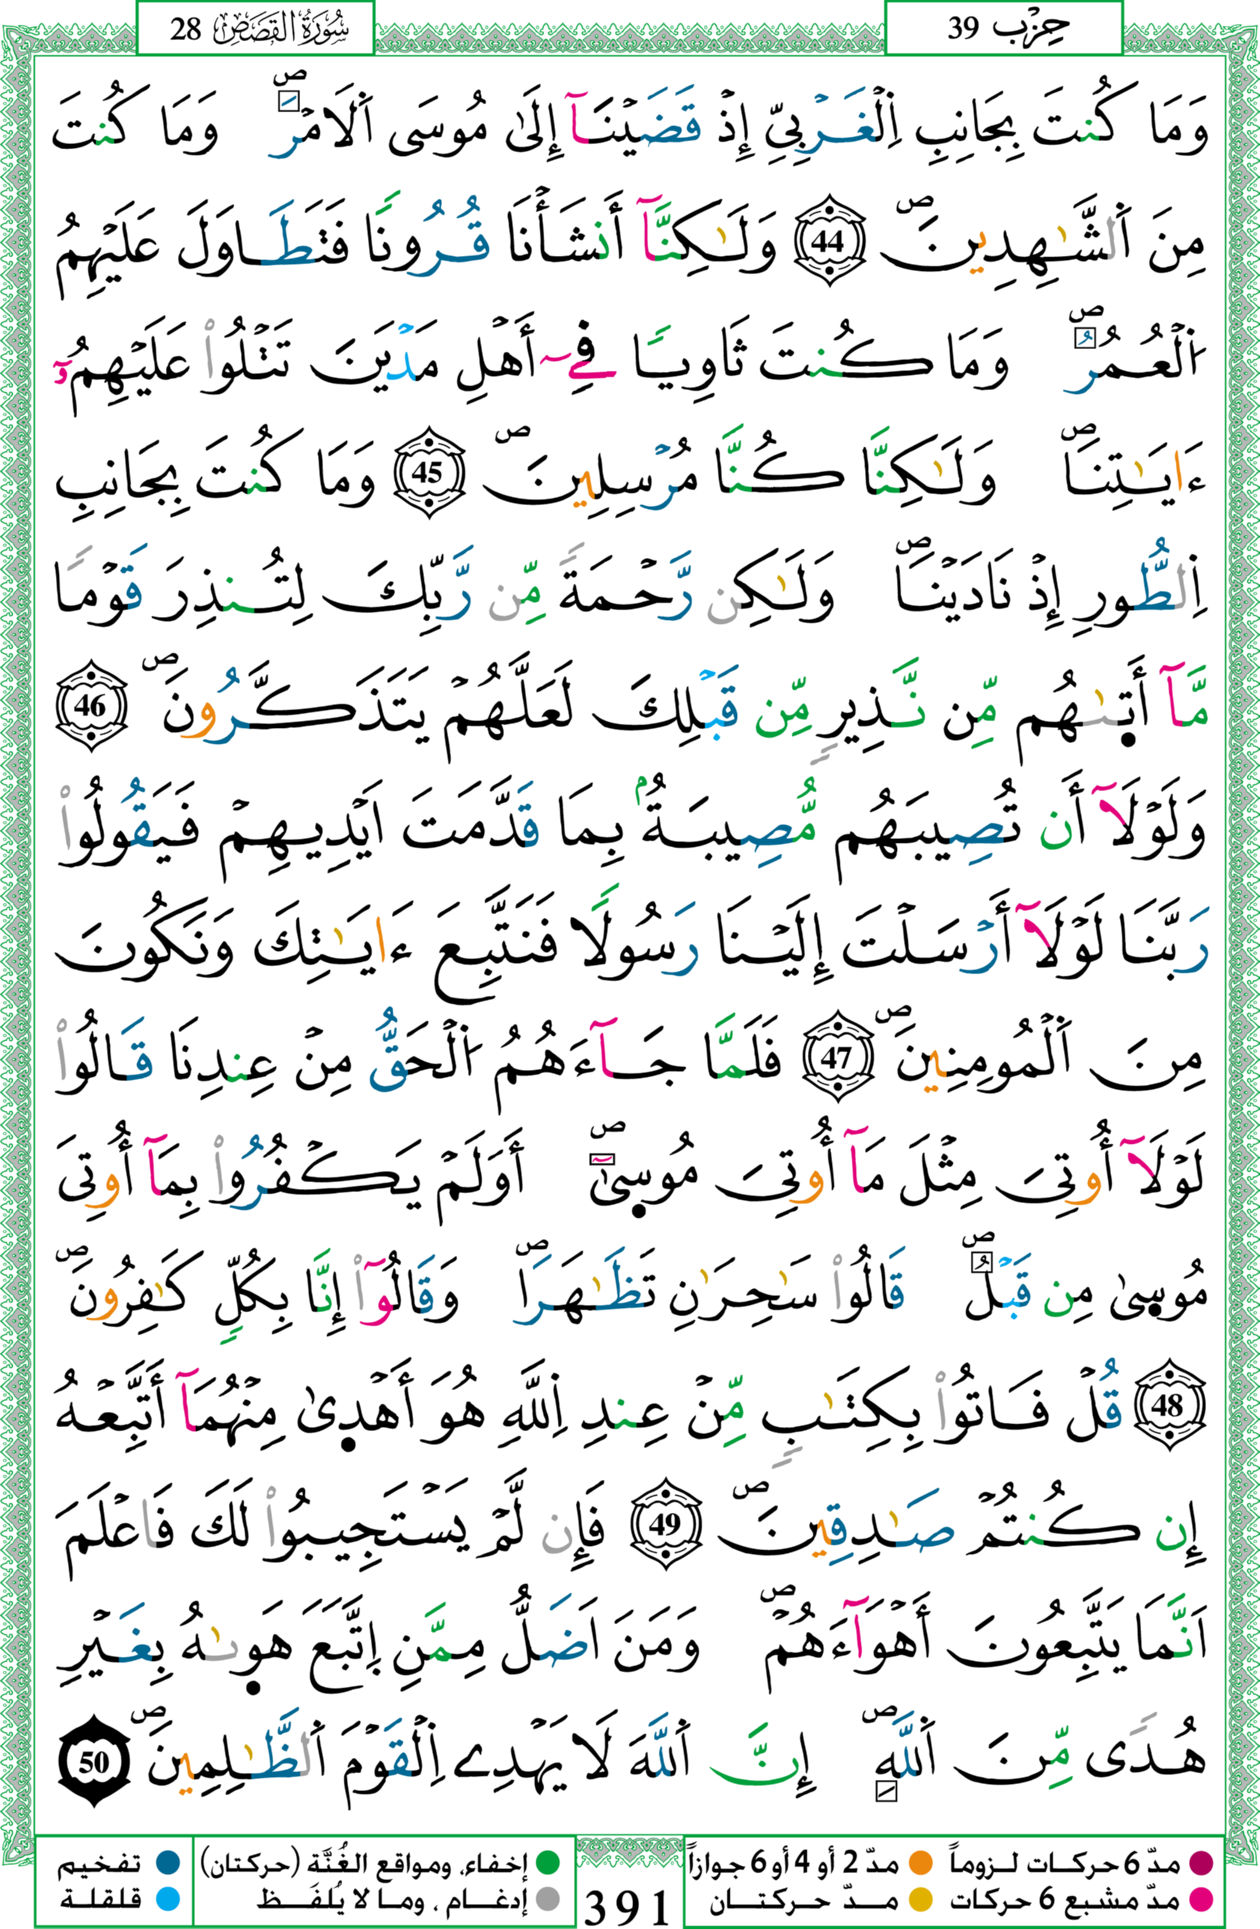 حِزْب 39
سُورَةُ الْقَصَصِ 28
وَمَا كُنتَ بِجَانِبِ اِ۬لْغَرْبِيِّ إِذْ قَضَيْنَآ إَلَىٰ مُوسَى اَ۬لَامْرَۖ وَمَا كُنتَ
مِنَ اَ۬لشَّٰهِدِينَۖ 44 وَلَٰكِنَّآ أَنشَأْنَا قُرُوناٗ فَتَطَاوَلَ عَلَيْهِمُ
اُ۬لْعُمُرُۖ وَمَا كُنتَ ثَاوِياٗ فِےٓ أَهْلِ مَدْيَنَ تَتْلُواْ عَلَيْهِمُۥٓ
ءَايَٰتِنَاۖ وَلَٰكِنَّا كُنَّا مُرْسِلِينَۖ 45 وَمَا كُنتَ بِجَانِبِ
اِ۬لطُّورِ إِذْ نَادَيْنَاۖ وَلَٰكِن رَّحْمَةٗ مِّن رَّبِّكَ لِتُنذِرَ قَوْماٗ
مَّآ أَتٜىٰهُم مِّن نَّذِيرٖ مِّن قَبْلِكَ لَعَلَّهُمْ يَتَذَكَّرُونَۖ 46
وَلَوْلَآ أَن تُصِيبَهُم مُّصِيبَةُۢ بِمَا قَدَّمَتَ اَيْدِيهِمْ فَيَقُولُواْ
رَبَّنَا لَوْلَآ أَرْسَلْتَ إِلَيْنَا رَسُولاٗ فَنَتَّبِعَ ءَايَٰتِكَ وَنَكُونَ
مِنَ اَ۬لْمُومِنِينَۖ 47 فَلَمَّا جَآءَهُمُ اُ۬لْحَقُّ مِنْ عِندِنَا قَالُواْ
لَوْلَآ أُوتِيَ مِثْلَ مَآ أُوتِيَ مُوسٜىٰٓۖ أَوَلَمْ يَكْفُرُواْ بِمَآ أُوتِيَ
مُوسٜىٰ مِن قَبْلُۖ قَالُواْ سَٰحِرَٰنِ تَظَّٰهَرَاۖ وَقَالُوٓاْ إِنَّا بِكُلّٖ كَٰفِرُونَۖ
48 قُلْ فَاتُواْ بِكِتَٰبٖ مِّنْ عِندِ اِ۬للَّهِ هُوَ أَهْدٜىٰ مِنْهُمَآ أَتَّبِعْهُ
إِن كُنتُمْ صَٰدِقِينَۖ 49 فَإِن لَّمْ يَسْتَجِيبُواْ لَكَ فَاعْلَمَ
اَنَّمَا يَتَّبِعُونَ أَهْوَآءَهُمْۖ وَمَنَ اَضَلُّ مِمَّنِ اِ۪تَّبَعَ هَوٜىٰهُ بِغَيْرِ
هُدىٗ مِّنَ اَ۬للَّهِۖ إِنَّ اَ۬للَّهَ لَا يَهْدِے اِ۬لْقَوْمَ اَ۬لظَّٰلِمِينَۖ 50
مدّ 6 حركات لـزوماً
مدّ 2 أو 4 أو 6 جوازاً
إخفاء، ومواقع الغُنَّة (حركتان)
تفخيم
مدّ مشبع 6 حركات
مـدّ حـركتـان
إدغـام ، ومـا لا يُلفَـظ
قلقلـة
391